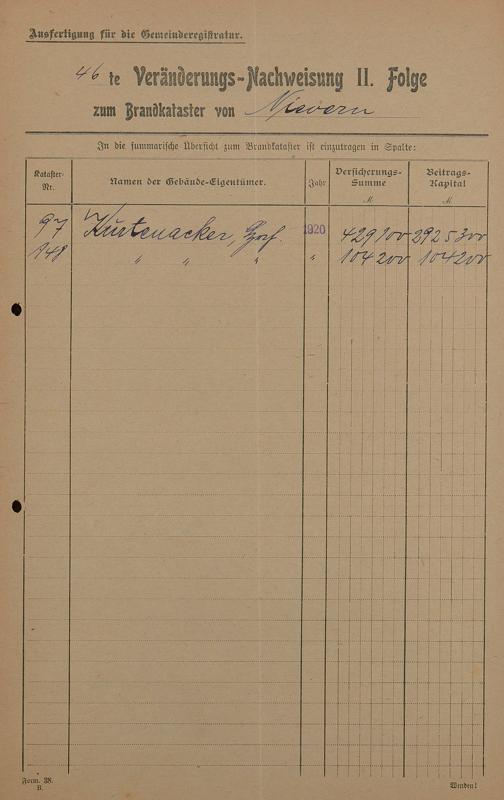 Ausfertigung für die Gemeinderegistratur.
46 te Veränderungs-Nachweisung II. Folge
zum Brandkataster von Nievern
In die summarische Übersicht zum Brandkataster ist einzutragen in Spalte:
Kataster-Nr. Namen der Gebäude-Eigentümer. Jahr Versicherungs-Summe M. Beitrags-Kapital M.
97 Kurtenacker, 1920 429100 2925300
148 " " " " 104200 104200
Form. 38. B.
Wenden!